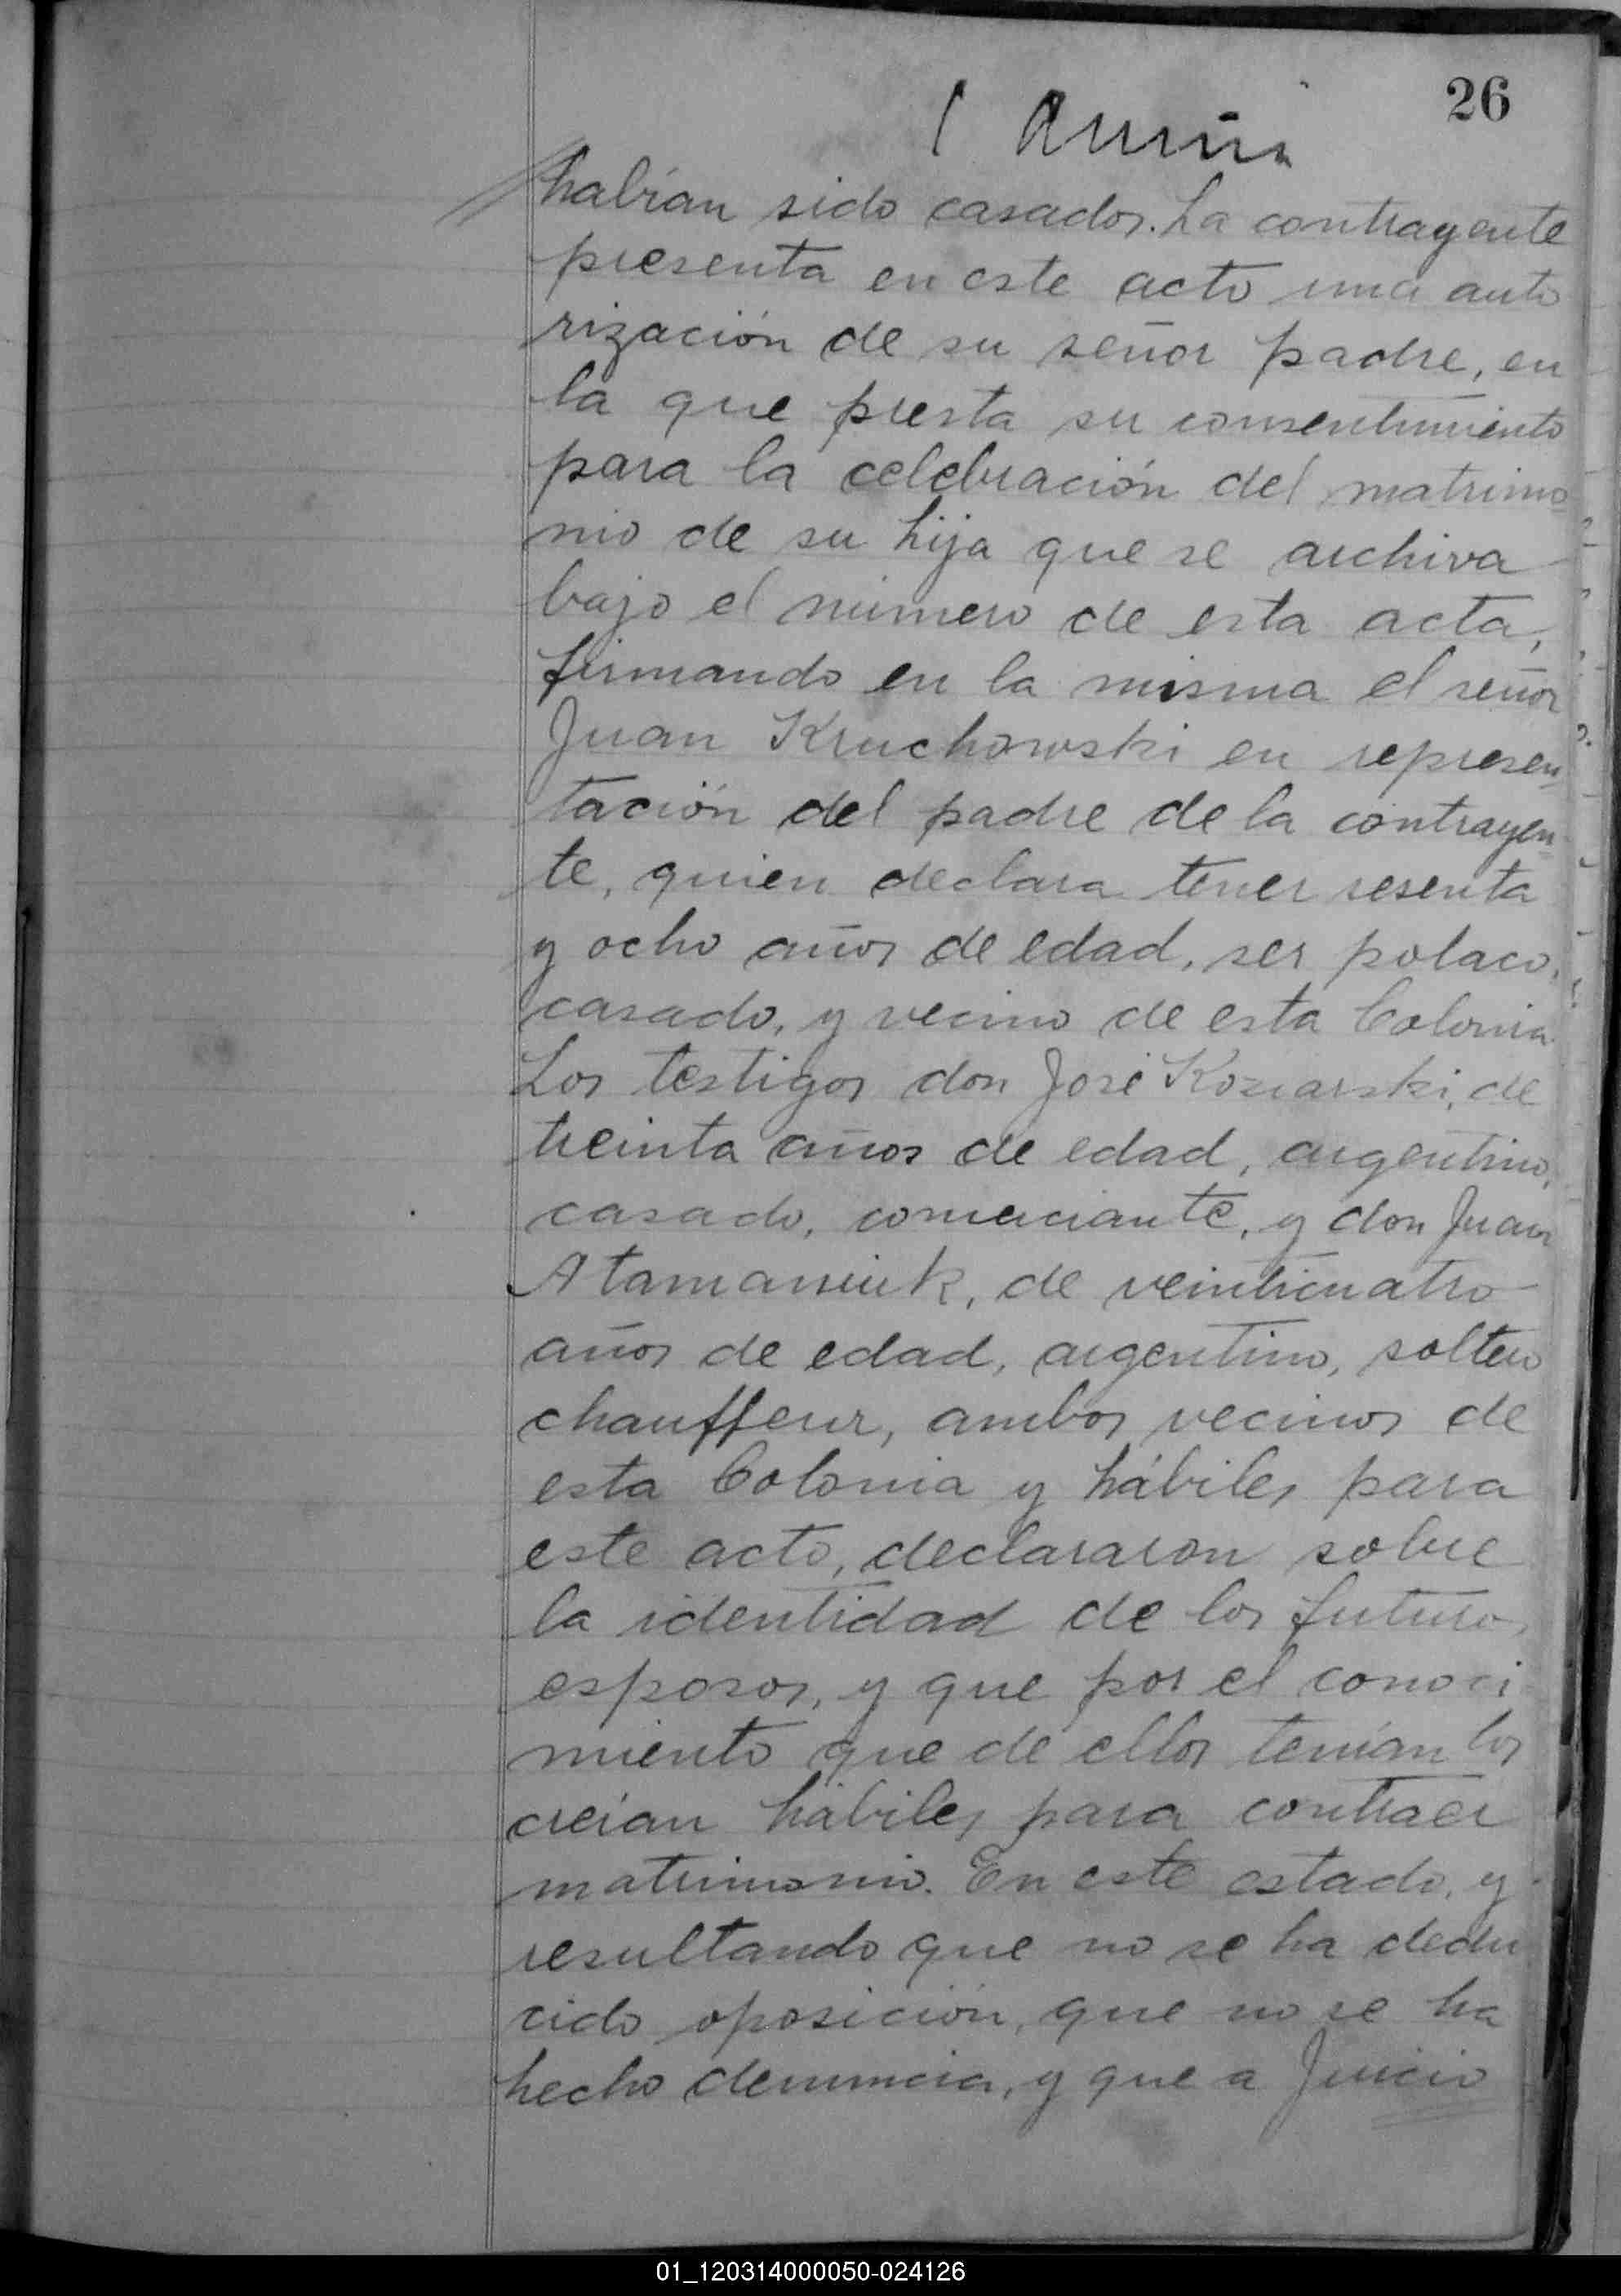 26
habían sido casados. La contrayente
presenta en este acto una auto
rización de su señor padre, en
la que presta su consentimiento
para la celebración del matrimo
nio de su hija que se archiva
bajo el número de esta acta,
firmando en la misma el señor
Juan Kruchowski en represen
tación del padre de la contrayen
te, quien declara tener sesenta
y ocho años de edad, ser polaco,
casado, y vecino de esta Colonia.
Los testigos don José Koziarski, de
treinta años de edad, argentino,
casado, comerciante, y don Juan
Atamaniuk, de veinticuatro
años de edad, argentino, soltero
chauffeur, ambos vecinos de
esta Colonia y hábiles para
este acto, declararon sobre
la identidad de los futuros
esposos, y que por el conoci
miento que de ellos tenían los
creían hábiles para contraer
matrimonio. En este estado, y
resultando que no se ha dedu
cido oposición, que no se ha
hecho denuncia, y que a Juicio
01_120314000050-024126